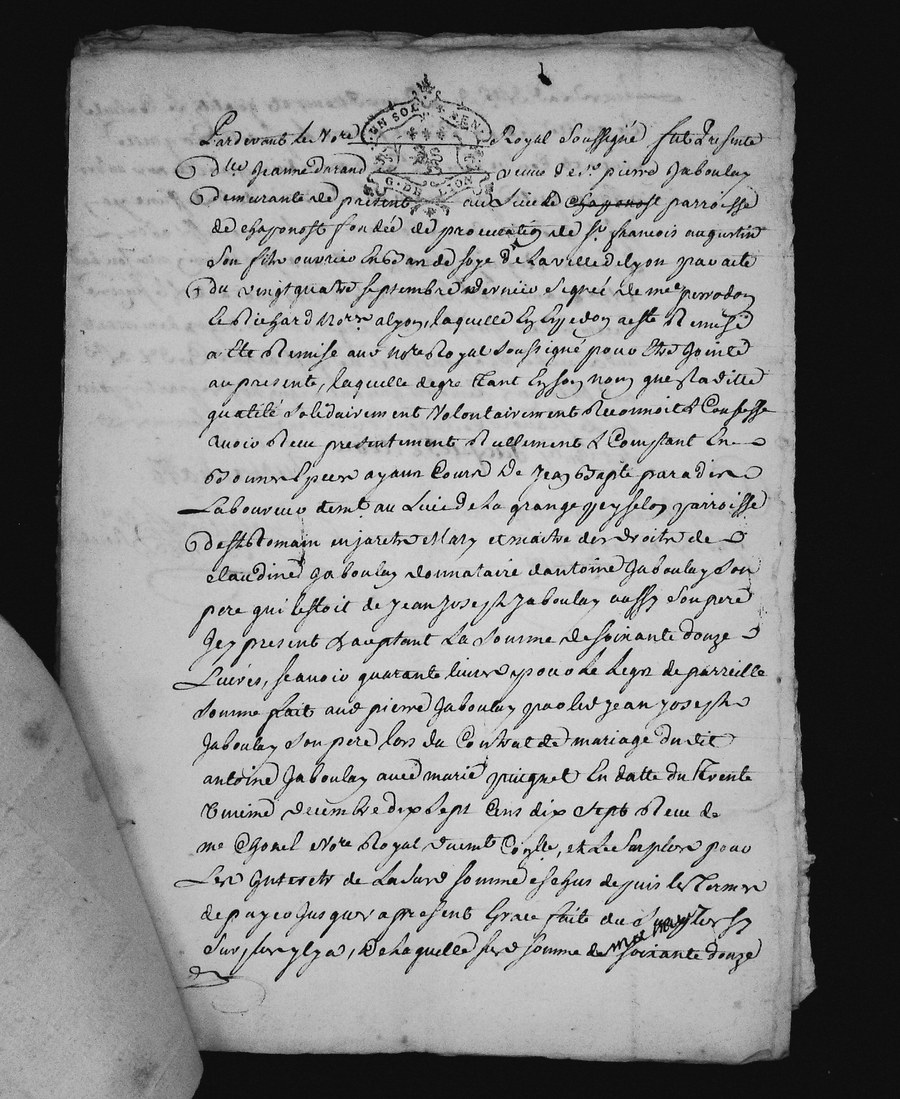 Pardevant le No.re Royal Soussigné fut presente
EN SOL EN
G. DE LYON
d.lle Jeanne Durand veuve de S.r pierre Jaboulay
demeurante de present au Lieu de Chaponost parroisse
de chaponost fondée de procuration de S.r francois augustin
Son fils ouvrier en bas de soye de La ville de lyon par acte
du vingtquatre septembre dernier Signée de m.e perrodon
et Richard No.res a lyon, laquelle En Expedon a esté Remise
a Ette Remise aud no.re Royal soussigné pour Etre Jointe
au presente, laquelle de gré tant En son nom que En laditte
qualité solidairement volontairement Reconnoit & Confesse
avoir Reçu presentement Reellement & Comptant En
Bonnes Especes ayant Cours de Jean Bapte paradis
Laboureur demt au Lieu de La grange peyselon parroisse
de st Romain en jarets Mary et maitre des droits de
claudine Jaboulay donnataire d'antoine Jaboulay son
pere qui l'estoit de jean Joseph Jaboulay aussy son pere
Icy present & aceptant La Somme de soixante douze
Livres, seavoir quarante livres pour Le Legs de parreille
somme fait aud pierre Jaboulay par led jean joseph
Jaboulay Son pere lors du Contrat de mariage dudit
antoine Jaboulay avec marie puignet En datte du trente
unieme decembre dix sept Cens dix Sept Reçu de
me Chorel No.re Royal et Le Surplus pour
Les Interets de La Susd somme eschus depuis les Termes
de payer Jusques a present Grace faite du Surplus sy
Surplus y a, De Laquelle susd somme de soixante douze